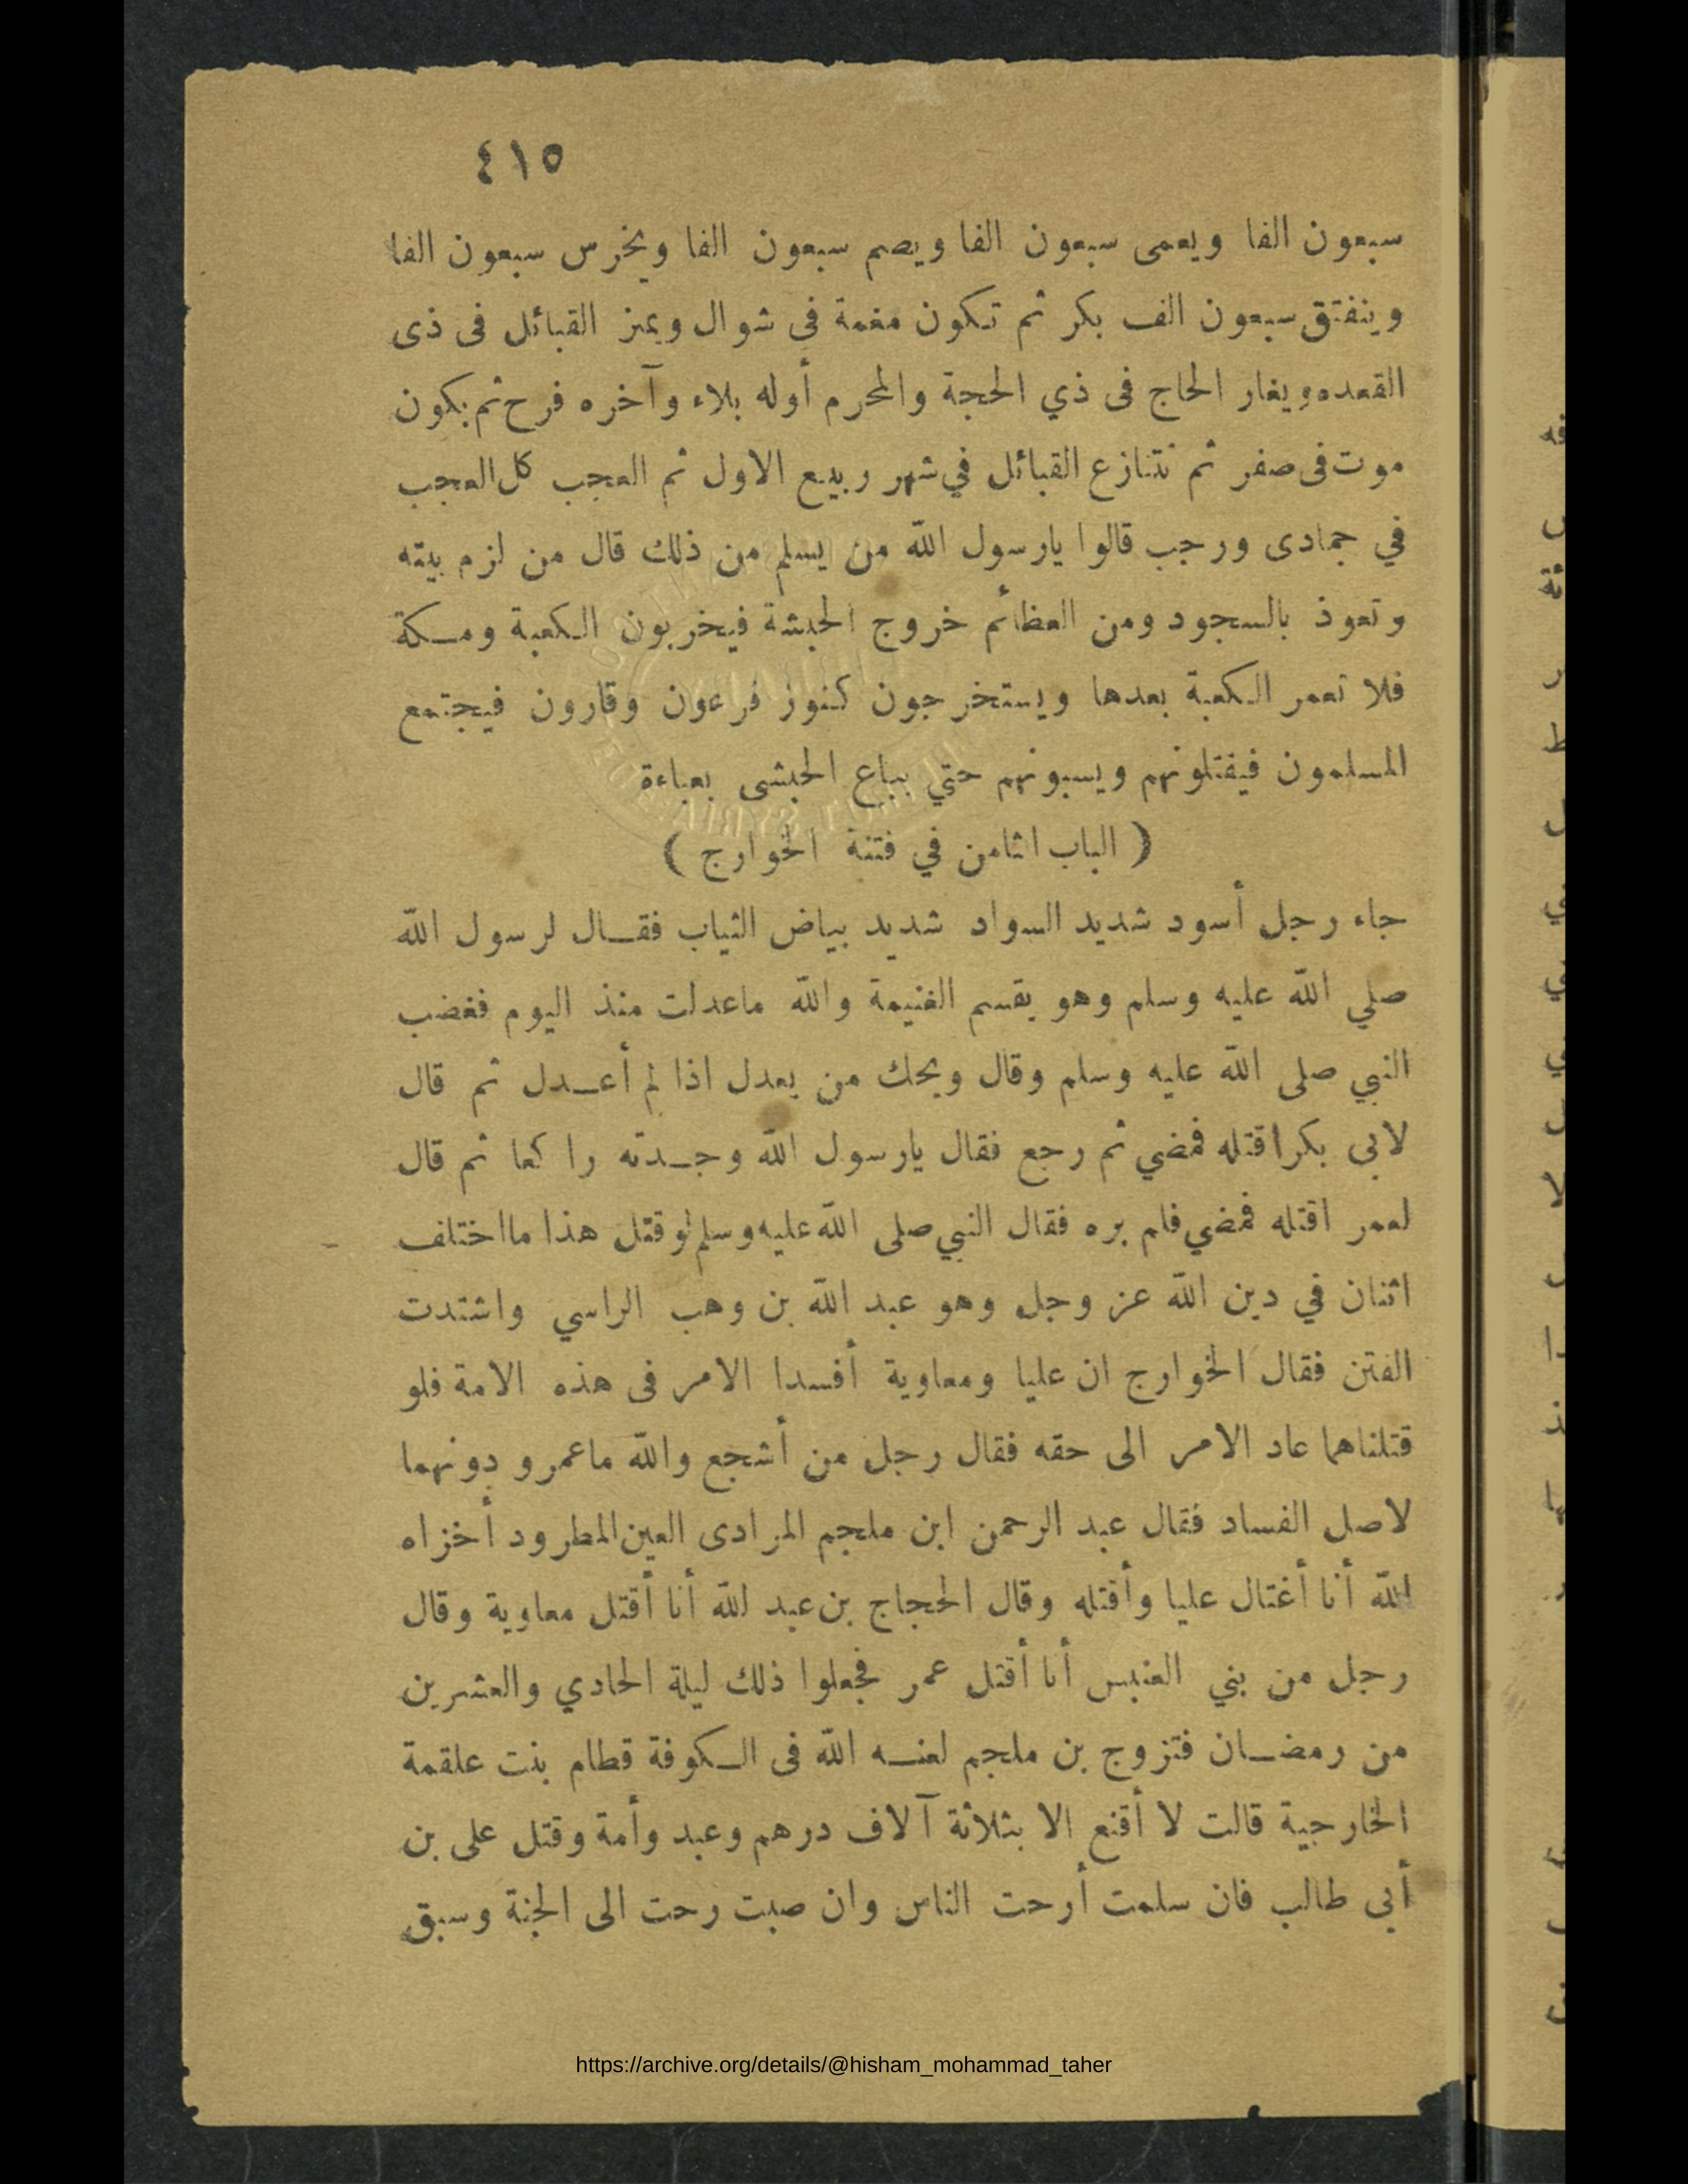 ٤١٥
سبعون الفا ويعمى سبعون الفا ويصم سبعون الفا ويخرس سبعون الفا
وينفتق سبعون الف بكر ثم تكون مغمة فى شوال ويميز القبائل فى ذى
القعده ويغار الحاج فى ذي الحجة والمحرم أوله بلاء وآخره فرح ثم يكون
موت فى صفر ثم تتنازع القبائل في شهر ربيع الاول ثم العجب كل العجب
في جمادى ورجب قالوا يارسول الله من يسلم من ذلك قال من لزم بيته
وتعوذ بالسجود ومن العظائم خروج الحبشة فيخربون الكعبة ومكة
فلا تعمر الكعبة بعدها ويستخرجون كنوز فرعون وقارون فيجتمع
المسلمون فيقتلونهم ويسبونهم حتي يباع الحبشى بعباءة
( الباب اثامن في فتنة الخوارج )
جاء رجل أسود شديد السواد شديد بياض الثياب فقال لرسول الله
صلي الله عليه وسلم وهو يقسم الغنيمة والله ماعدلت منذ اليوم فغضب
النبي صلى الله عليه وسلم وقال ويحك من يعدل اذا لم أعدل ثم قال
لابى بكر اقتله فمضي ثم رجع فقال يارسول الله وجدته راكعا ثم قال
لعمر اقتله فمضي فلم يره فقال النبي صلى الله عليه وسلم لو قتل هذا مااختلف
اثنان في دين الله عز وجل وهو عبد الله بن وهب الراسي واشتدت
الفتن فقال الخوارج ان عليا ومعاوية أفسدا الامر فى هذه الامة فلو
قتلناهما عاد الامر الى حقه فقال رجل من أشجع والله ماعمرو دونهما
لاصل الفساد فقال عبد الرحمن ابن ملجم المرادى العين المطرود أخزاه
الله أنا أغتال عليا وأقتله وقال الحجاج بن عبد لله أنا أقتل معاوية وقال
رجل من بني العنبس أنا أقتل عمر فجعلوا ذلك ليلة الحادي والعشرين
من رمضان فتزوج بن ملجم لعنه الله فى الكوفة قطام بنت علقمة
الخارجية قالت لا أقنع الا بثلاثة آلاف درهم وعبد وأمة وقتل على بن
أبى طالب فان سلمت أرحت الناس وان صبت رحت الى الجنة وسبق
https://archive.org/details/@hisham_mohammad_taher